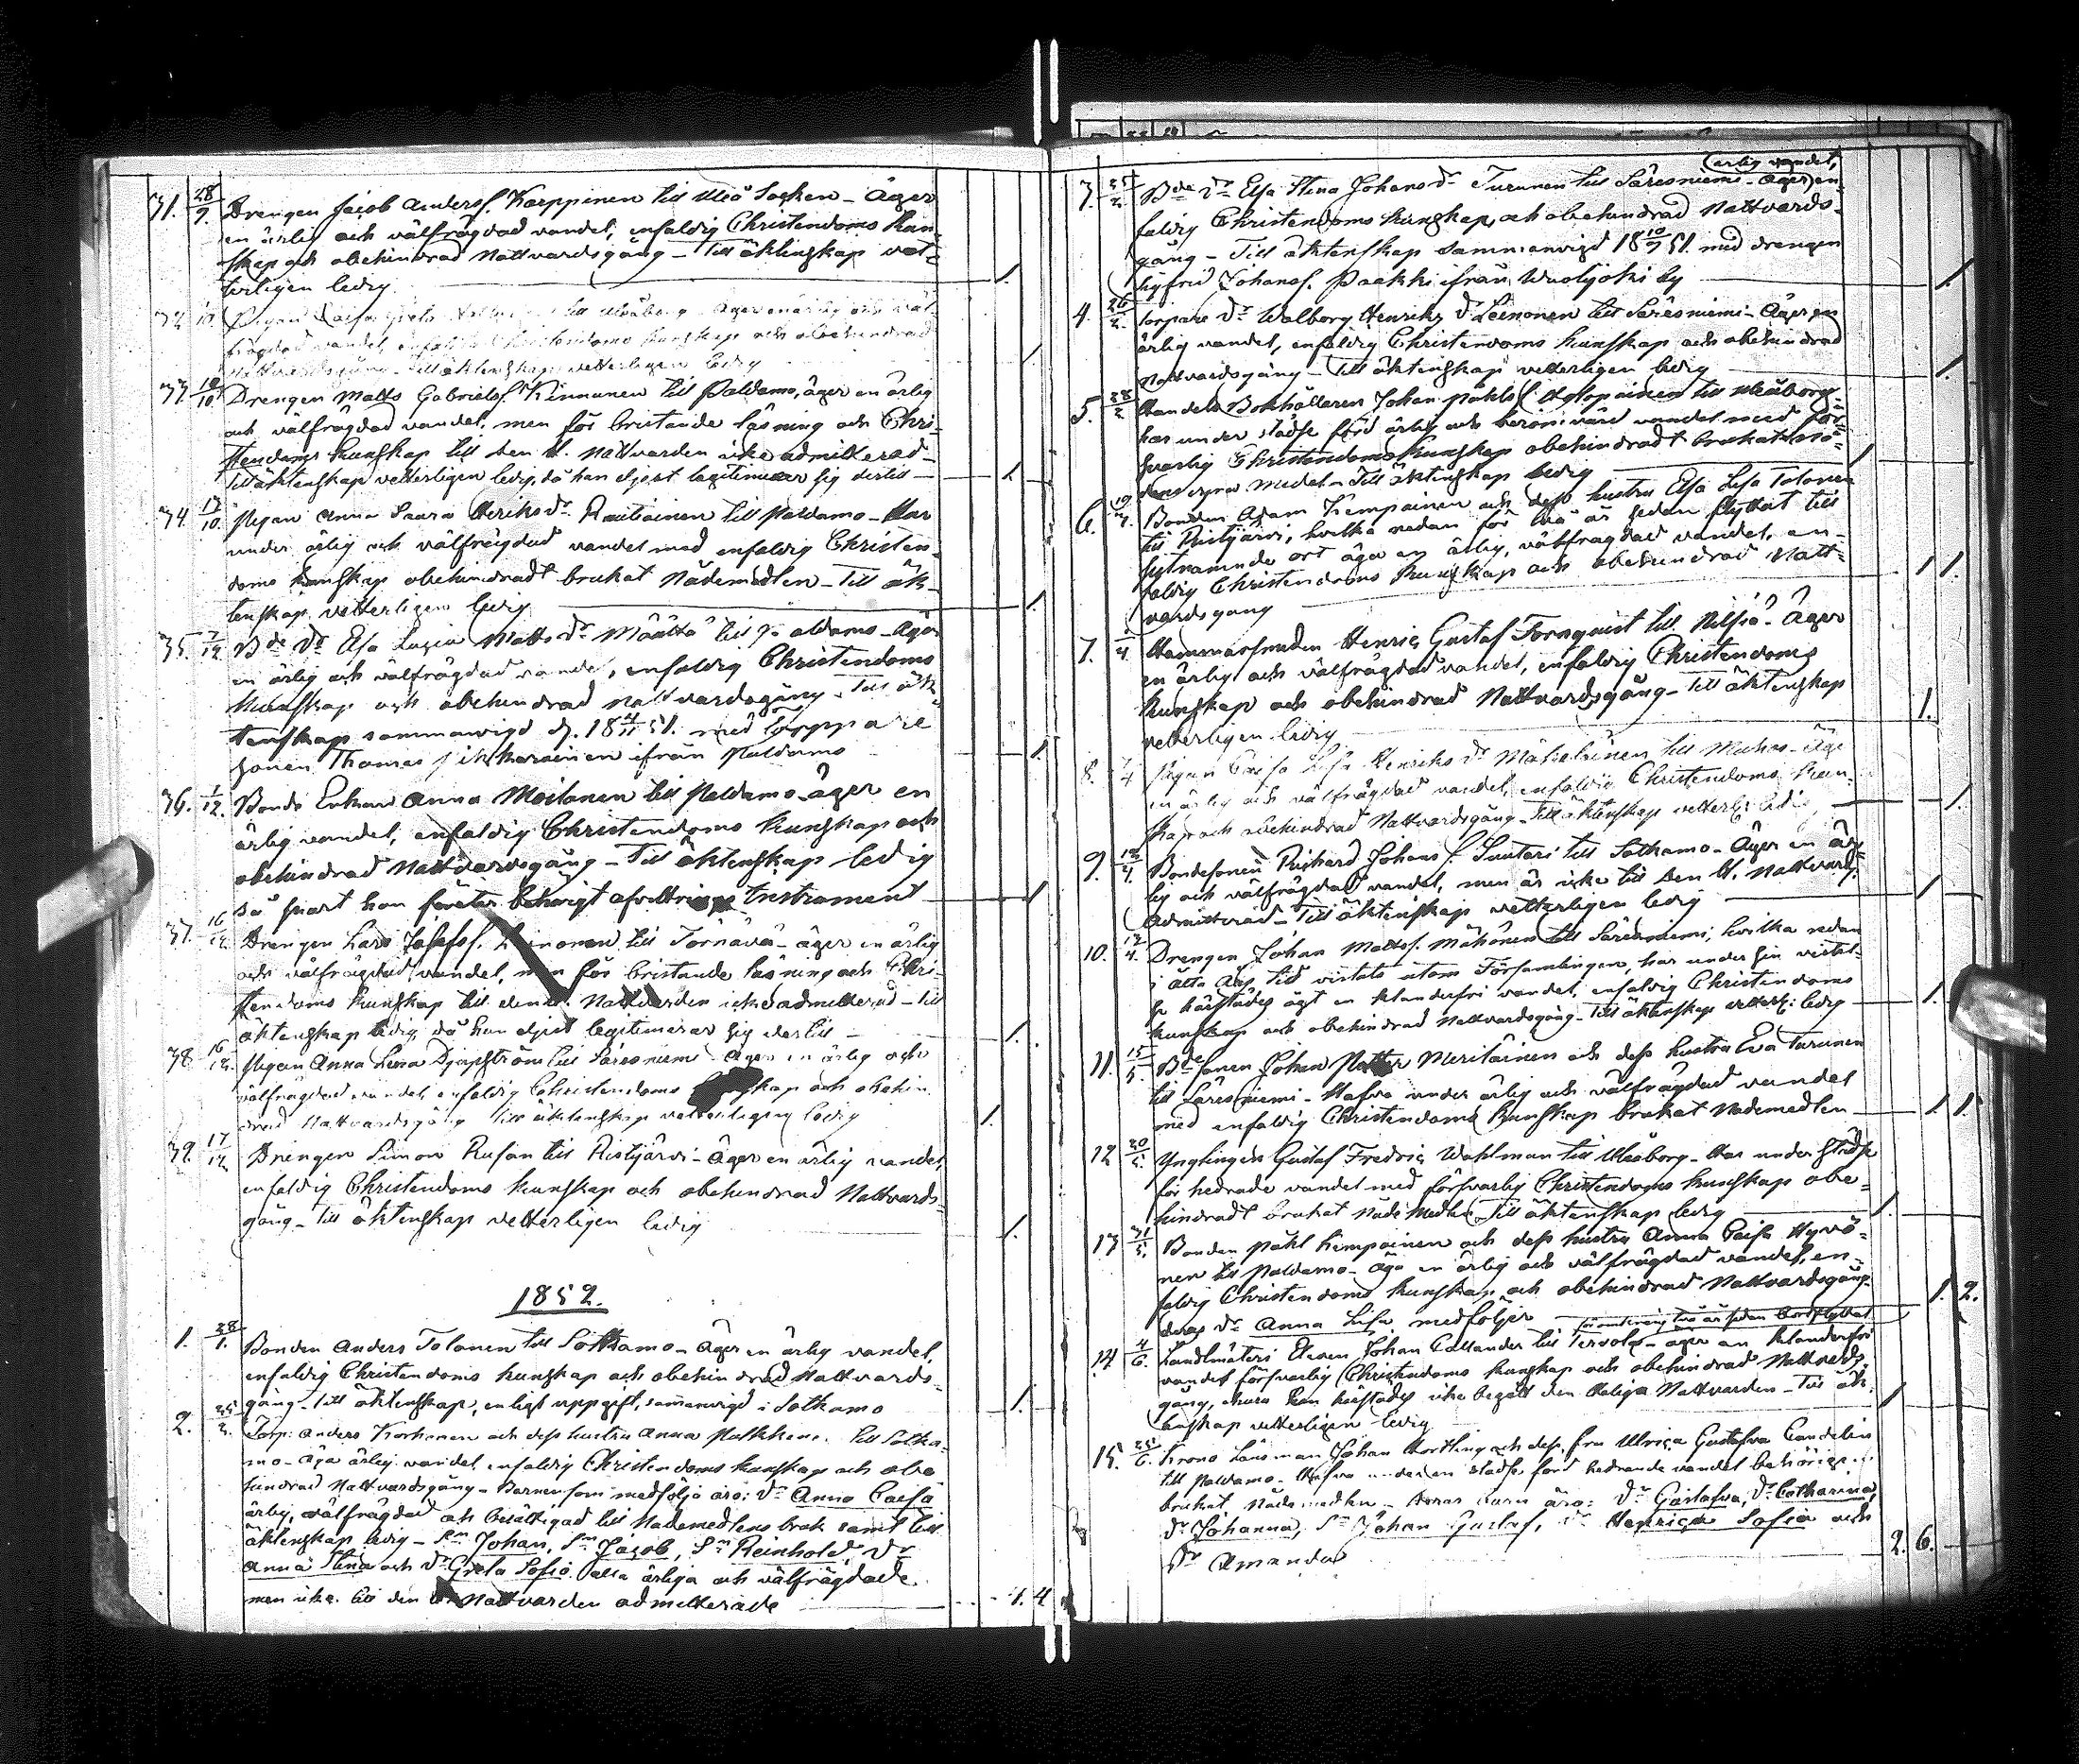 31. 28/9. Drengen Jacob Anders s. Karppinen till Uleå Socken - Äger
en ärlig och välfrägdad vandel, enfaldig Christendoms kun-
skap och obehindrad Nattvardsgång - Till äktenskap vet-
terligen ledig 1.
32 10. Pigan Caisa Greta till Uleåborg - Äger en ärlig och väl-
frägdad vandel, enfaldig Christendoms kunskap och obehindrad
Nattvardsgång - Till äktenskap vetterligen ledig 1
33. 10/10. Drengen Matts Gabriels s. Kinnunen till Paldamo, äger en ärlig
och välfrägdad vandel, men för bristande läsning och Chri-
stendoms kunskap till den H. Nattvarden icke admitterad -
Till äktenskap vetterligen ledig, då han eljest legitimerar sig dertill 1
34. 13/10. Pigan Anna Saara Henriks dr. Rautiainen till Paldamo - Har
under ärlig och välfrägdad vandel med enfaldig Christen-
doms kunskap obehindradt brukat Nådemedlen - Till äk-
tenskap vetterligen ledig 1.
35. 7/12. Bde Dr. Elsa Lucia Matts dr. Määttä till Paldamo - Äger
en ärlig och välfrägdad vandel, enfaldig Christendoms
kunskap och obehindrad nattvardsgång - Till äk-
tenskap sammanvigd d. 18 4/11 51. med torppare
sonen Thomas Pikkarainen ifrån Paldamo 1.
36. 7/12. Bonde Enkan Anna Moilanen till Paldamo - äger en
ärlig vandel, enfaldig Christendoms kunskap och
obehindrad Nattvardsgång - Till äktenskap ledig
så snart hon företer behörigt afvittrings Instrument 1
37. 16/12. Drengen Lars Josefs s. Leinonen till Törnävä - äger en ärlig
och välfrägdad vandel, men för bristande läsning och Chri-
stendoms kunskap till den H. Nattvarden icke admitterad - Till
äktenskap ledig, då han eljest legitimerar sig dertill - 1.
38 16/12. Pigan Anna Lena till Säresniemi - Äger en ärlig och
välfrägdad vandel, enfaldig Christendoms kunskap och obehin-
drad Nattvardsgång Till äktenskap vetterligen ledig 1.
39. 17/12 Drengen Simon Rusan till Ristijärvi - Äger en ärlig vandel,
enfaldig Christendoms kunskap och obehindrad Nattvards-
gång - Till äktenskap vetterligen ledig 1.
1852.
1. 28/1. Bonden Anders Tolonen till Sotkamo - Äger en ärlig vandel,
enfaldig Christendoms kunskap och obehindrad Nattvards-
gång - Till äktenskap, enligt uppgift, sammanvigd i Sotkamo 1.
2. 25/2. Torp: Anders Korhonen och dess hustru Anna till Sotka-
mo - Äga ärlig vandel, enfaldig Christendoms kunskap och obe-
hindrad Nattvardsgång - Barnen som medfölja äro: Dr. Anna Caisa
ärlig, välfrägdad och berättigad till Nådemedlens bruk samt till
äktenskap ledig - Sn Johan, Sn Jacob, Sn Reinhold, Dr.
Anna Stina och Dr. Greta Sofia alla ärliga och välfrägdade
men icke till den H. Nattvarden admitterade 1. 4
3. 25/2. Bde Dr. Elsa Stina Johans dr. Turunen till Säresniemi - Äger ärlig vandel, en-
faldig Christendoms kunskap, och obehindrad Nattvards-
gång - Till äktenskap sammanvigd 18 10/7 51. med drengen
Sigfrid Johans s. Paakki ifrån Wuolijoki by 1.
4. 26/2. Torpare Dr. Walborg Henriks dr. Leinonen till Säresniemi - Äger en
ärlig vandel, enfaldig Christendoms kunskap och obehindrad
Nattvardsgång - Till äktenskap vetterligen ledig 1.
5. 28/2 Handels Bokhållaren Johan Påhls s. till Uleåborg -
har under städse förd ärlig och berömvärd vandel med för-
svarlig Christendoms kunskap obehindradt brukat salig-
dens dyra medel - Till äktenskap ledig 1
6. 19/3. Bonden Adam Kempainen och dess hustru Elsa Lisa Tolonen
till Ristijärvi, hvilka redan för två år sedan flyttat till
sistnämnde ort äga en ärlig, välfrägdad vandel, en-
faldig Christendoms kunskap och obehindrad Natt-
vardsgång 1 1.
7. /4 Hammarsmeden Henric Gustaf Tornquist till Nilsiä - Äger
en ärlig och välfrägdad vandel, enfaldig Christendoms
kunskap och obehindrad Nattvardsgång - Till äktenskap
vetterligen ledig 1.
8. 7/4 Pigan Caisa Lisa Henriks dr. till Muhos - Äger
en ärlig och välfrägdad vandel, enfaldig Christendoms kun-
skap och obehindrad Nattvardsgång - Till äktenskap vetterl: ledig 1.
9. 12/4. Bondesonen Richard Johans s. Suutari till Sotkamo - Äger en är-
lig och välfrägdad vandel, men är icke till den H. Nattvard:
admitterad - Till äktenskap vetterligen ledig 1
10. 12/4. Drengen Johan Matts s. Mähönen till Säresniemi, hvilka redan
i åtta års tid vistats utom Församlingen, har under sin vistel-
se härstädes ägt en klanderfri vandel, enfaldig Christendoms
kunskap och obehindrad Nattvardsgång - Till äktenskap vetterl: ledig 1.
11. 15/5. Bde Sonen Johan Meriläinen och dess hustru Eva Turunen
till Säresniemi - Hafva under ärlig och välfrägdad vandel
med enfaldig Christendoms kunskap brukat Nådemedlen 1. 1.
12 20/5. Ynglingen Gustaf Fredric Wahlman till Uleåborg - Har under städse
för hedrade vandel med försvarlig Christendoms kunskap obe-
hindradt brukat Nåde Medlen - Till äktenskap ledig 1.
13 31/5. Bonden Påhl Kempainen och dess hustru Anna Caisa Hyvö-
nen till Paldamo - Äga en ärlig och välfrägdad vandel, en-
faldig Christendoms kunskap och obehindrad Nattvardsgång -
deras dr. Anna Lisa medföljer 1. 2.
14 4/6. Landtmäteri Eleven Johan Callander till Tervola - äger en klanderfri
vandel försvarlig Christendoms kunskap och obehindrad Nattvards-
gång, ehuru han härstädes icke begått den Heliga Nattvarden - Till äk-
tenskap vetterligen ledig 1
15. 25/6. Krono Länsman Johan och dess fru Ulrica Gustafva Candelin
till Paldamo - Hafva under en städse förd hedrande vandel behörigen
brukat Nådemedlen - Deras barn äro: Dr. Gustafva, Dr. Catharina,
Dr. Johanna, Sn Johan Gustaf, Dr. Henrica Sofia och
Dr. Amanda 2. 6.